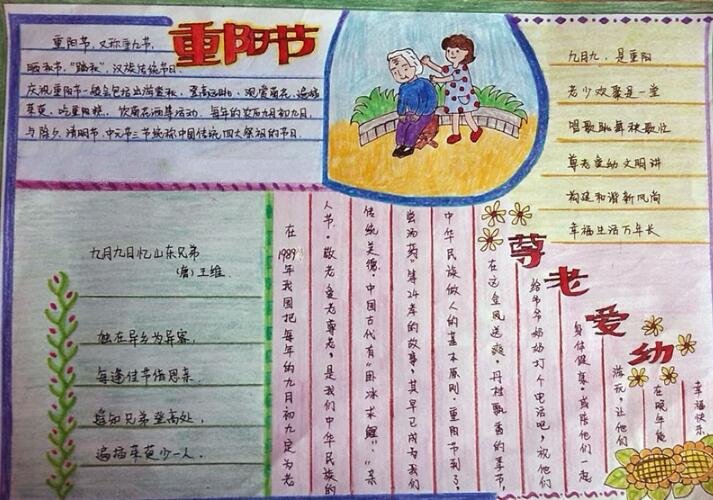 重阳节
重阳节，又称重九节，
晒秋节，“踏秋”，汉族传统节日。
庆祝重阳节一般会包括出游赏秋、登高远眺、观赏菊花、遍插
茱萸、吃重阳糕、饮菊花酒等活动。每年的农历九月初九日，
与除夕、清明节、中元节三节统称中国传统四大祭祖的节日。
九月九，是重阳
老少欢聚是一堂
唱歌跳舞秧歌忙
尊老爱幼文明讲
构建和谐新风尚
幸福生活万年长
九月九日忆山东兄弟
（唐）王维
独在异乡为异客，
每逢佳节倍思亲
遥知兄弟登高处，
遍插茱萸少一人。
尊老爱幼
在1989年我国把每年的九月初九定为老
人节，敬老爱老尊老，是我们中华民族的
传统美德。中国古代有“卧冰求鲤”、“亲
尝汤药”等24孝的故事，其早已成为我们
中华民族做人的基本原则。重阳节到了，
在这金风送爽，丹桂飘香的季节，
给爷爷奶奶打个电话吧，祝他们
身体健康，或陪他们一起
游玩，让他们
在晚年能
幸福快乐